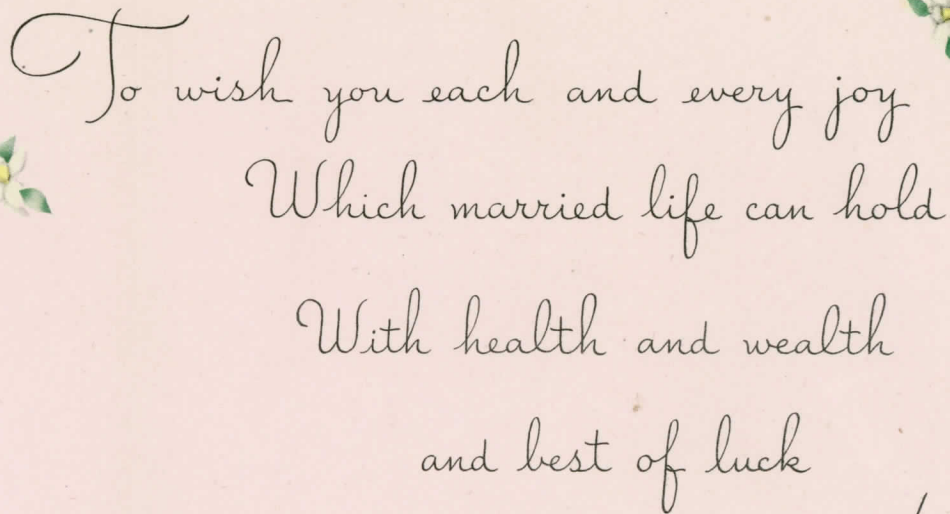 To wish you each and every joy
Which married life can hold
With health and wealth
and best of luck